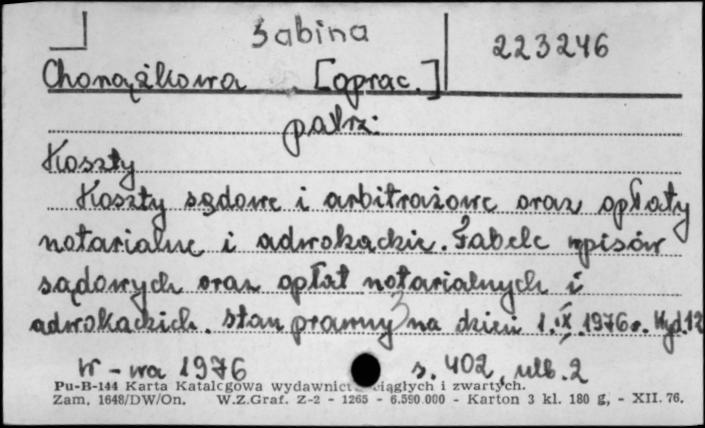 Sabina 223246
Chorążkowa [oprac.]
patrz:
Koszty
Koszty sądowe i arbitrażowe oraz opłaty
notarialne i adwokackie. Tabele wpisów
sądowych oraz opłat notarialnych i
adwokackich. Stan prawny na dzień 1.IX.1976r. Wyd.12
W-wa 1976 s. 402, nlb. 2
Pu-B-144 Karta Katalogowa wydawnictw ciągłych i zwartych.
Zam. 1648/DW/On. W.Z.Graf. Z-2 - 1265 - 6.590.000 - Karton 3 kl. 180 g, - XII. 76.